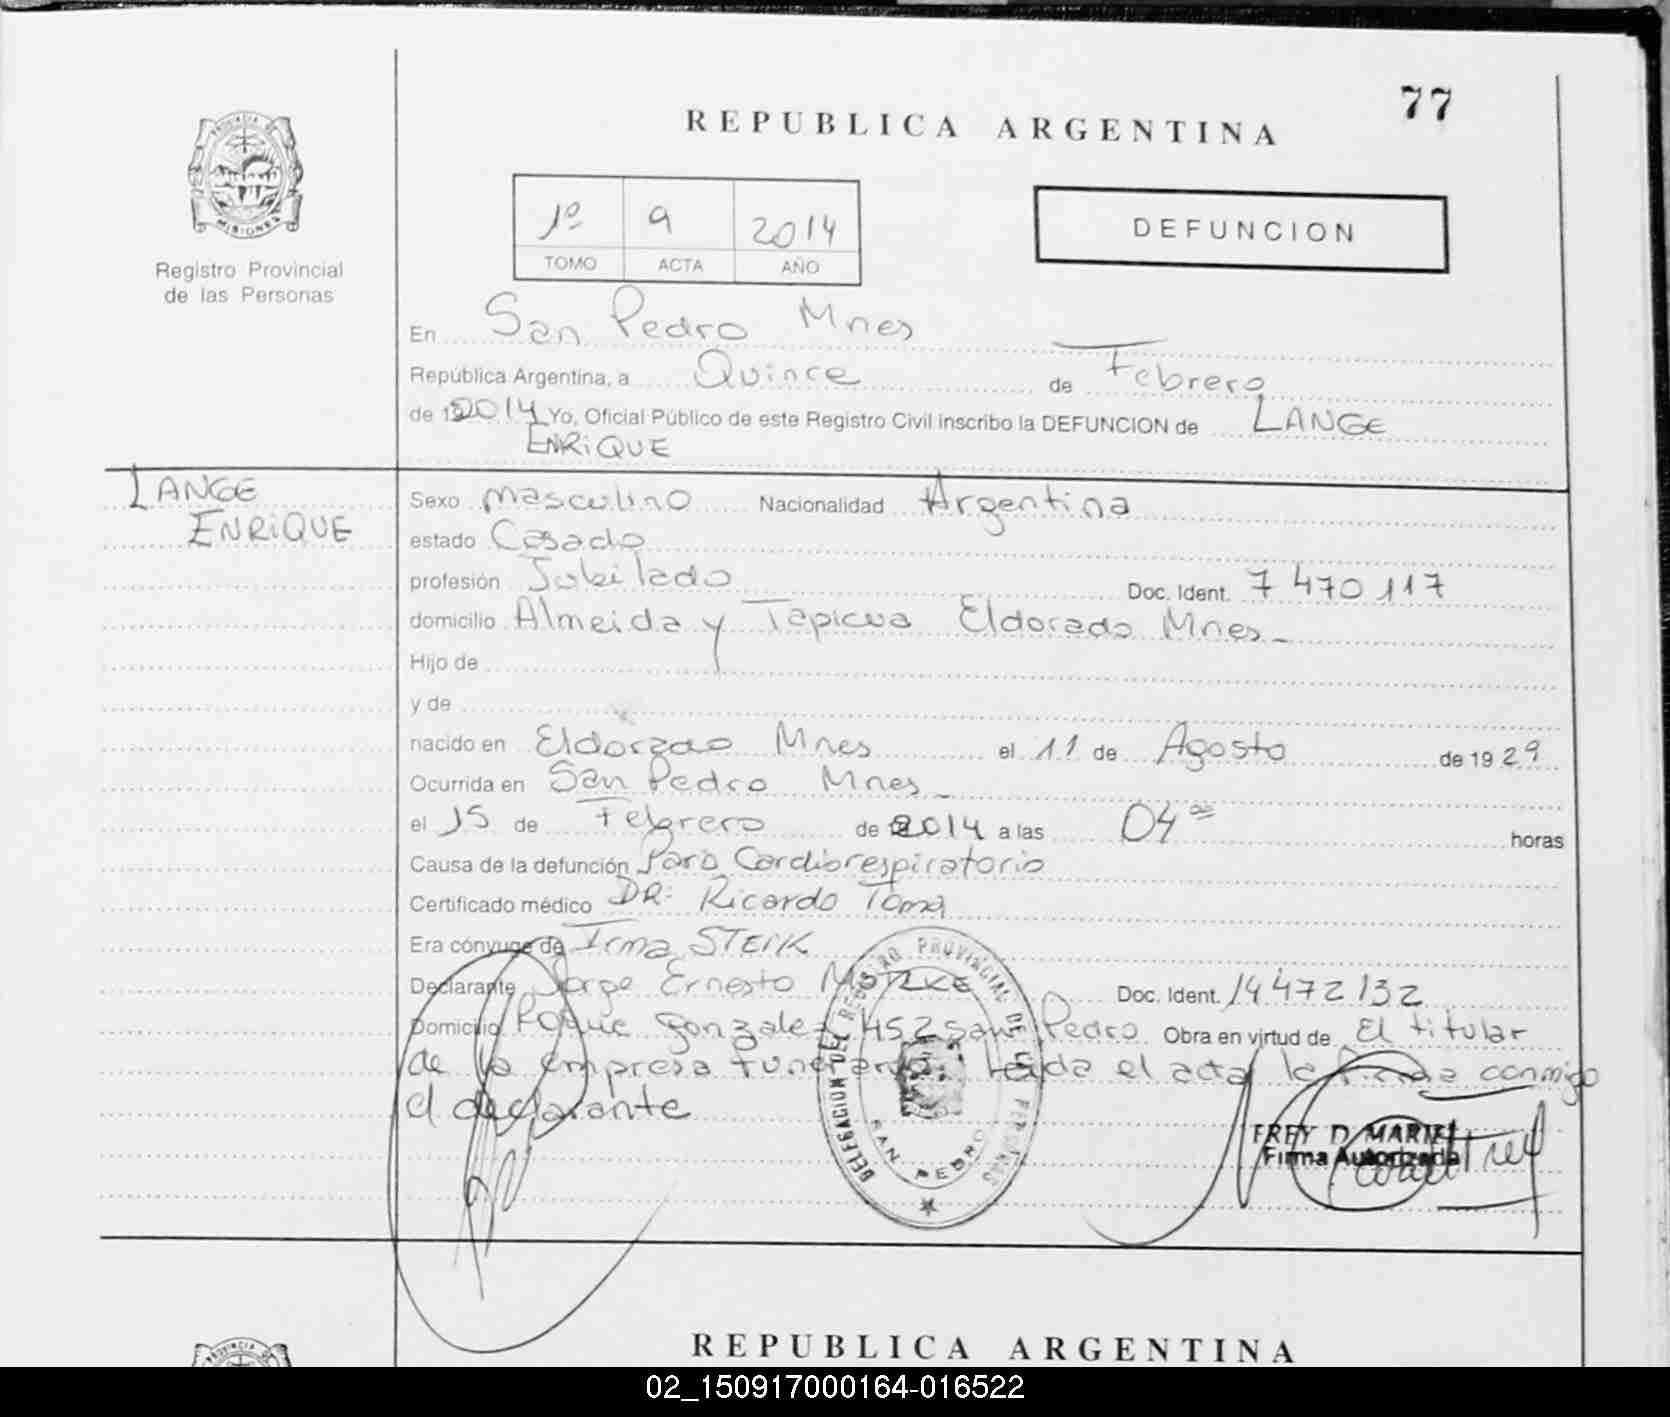 77
REPUBLICA ARGENTINA
PROVINCIA DE MISIONES
1º 9 2014
TOMO ACTA AÑO
DEFUNCION
Registro Provincial
de las Personas
En San Pedro Mnes
República Argentina, a Quince de Febrero
de 2014 Yo, Oficial Público de este Registro Civil inscribo la DEFUNCION de LANGE
ENRIQUE
LANGE
ENRIQUE
Sexo masculino Nacionalidad Argentina
estado Casado
profesión Jubilado Doc. Ident. 7 470 117
domicilio Almeida y Tapicua Eldorado Mnes
Hijo de
y de
nacido en Eldorado Mnes el 11 de Agosto de 19 29
Ocurrida en San Pedro Mnes
el 15 de Febrero de 2014 a las 04 horas
Causa de la defunción Paro Cardiorespiratorio
Certificado médico DR: Ricardo Toma
Era cónyuge de Irma
Declarante Jorge Ernesto Doc. Ident. 14 472 132
Domicilio Roque Gonzalez 452 San Pedro Obra en virtud de El titular
de la empresa funeraria Leida el acta la conmigo
el declarante
DELEGACION DEL REGISTRO PROVINCIAL DE LAS PERSONAS
SAN PEDRO
FREY D. MARIEL
Firma Autorizada
REPUBLICA ARGENTINA
02_150917000164-016522